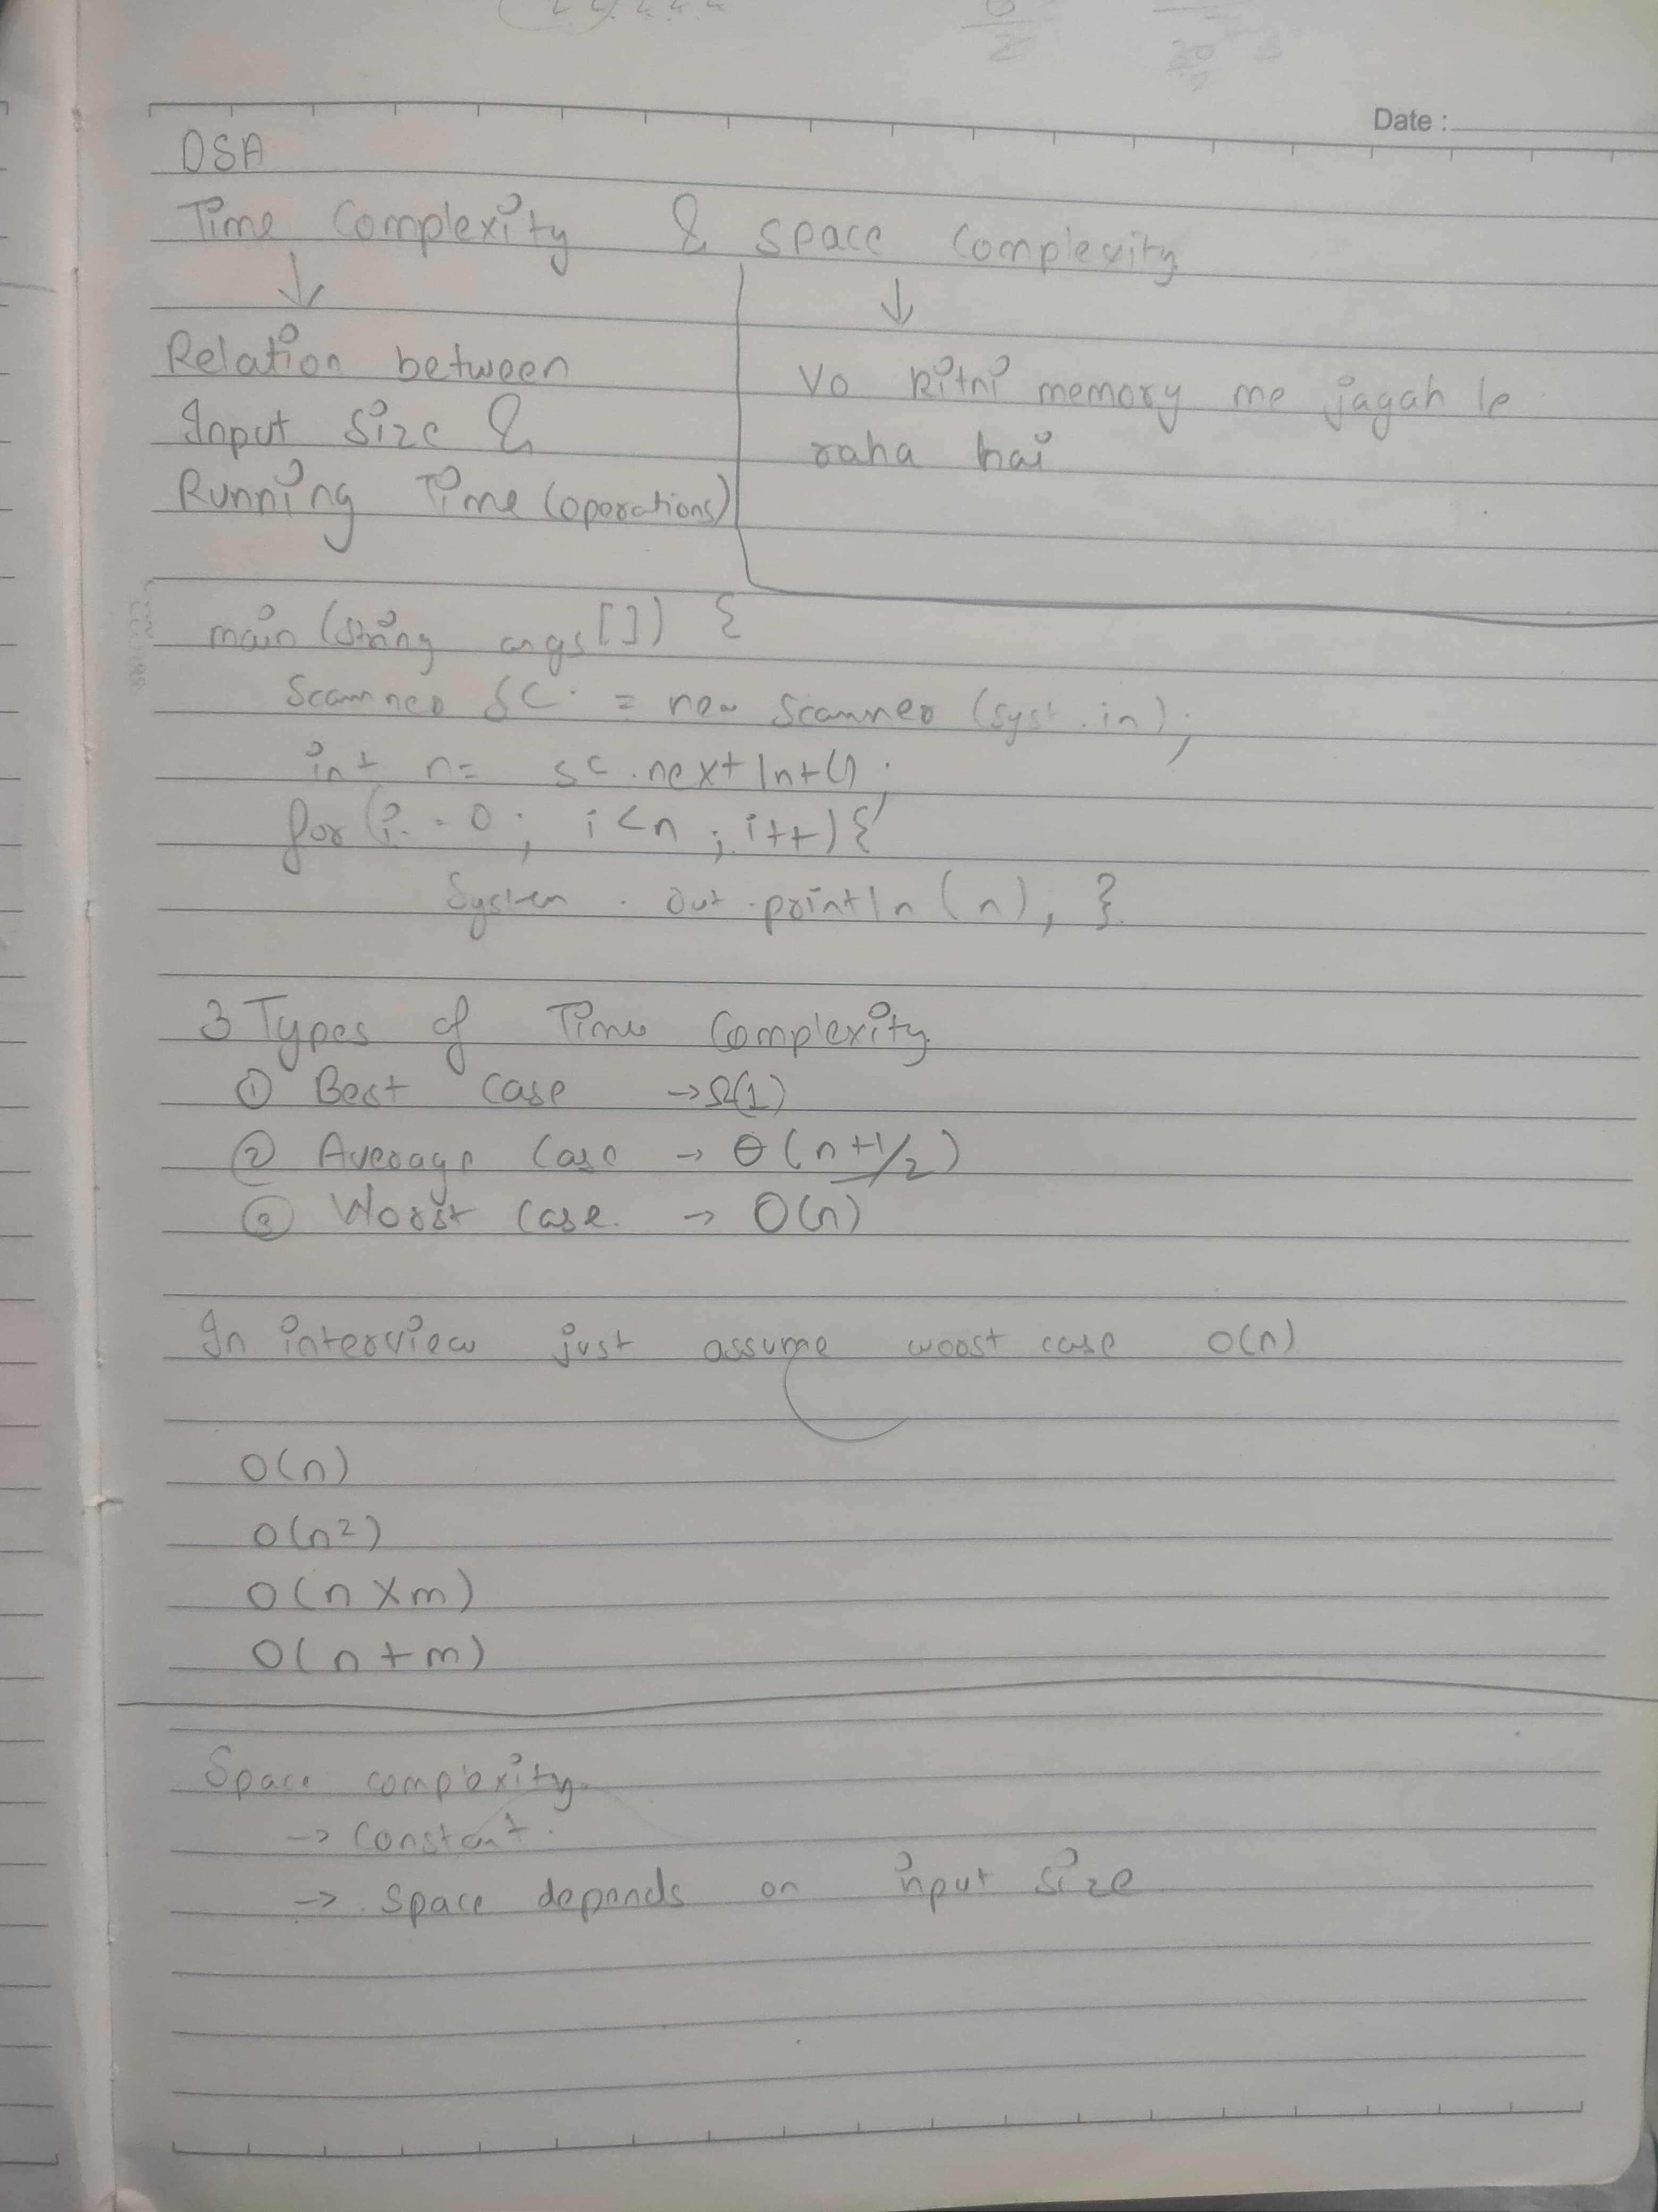 Date :
DSA
Time Complexity & space complexity
↓ ↓
Relation between
Input Size &
Running Time (operations)
Vo kitni memory me jagah le
raha hai
main (string args []) {
Scanner SC = new Scanner (syst.in);
int n= sc.nextInt();
for(i=0; i<n; i++){
System.out.println(n); }
3 Types of Time Complexity
① Best case →Ω(1)
② Average Case → Θ(n+1/2)
③ Worst Case. → O(n)
In interview just assume worst case O(n)
O(n)
O(n²)
O(n×m)
O(n+m)
Space complexity
→ Constant.
→ Space depends on input size